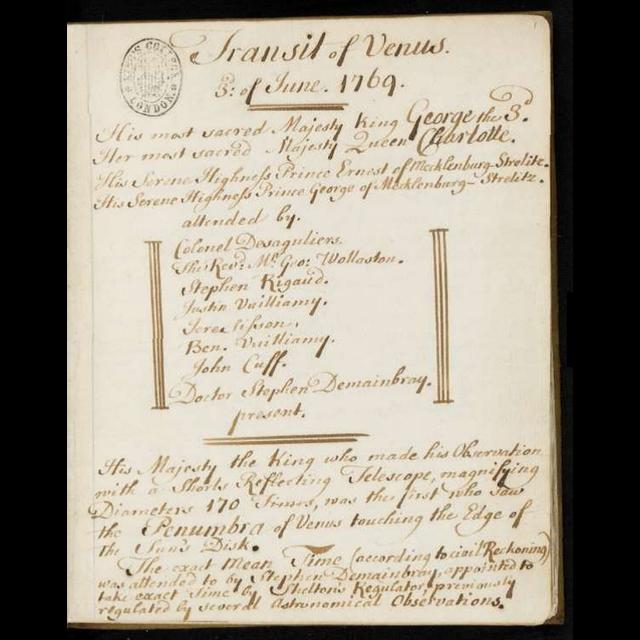 KING'S COLLEGE LONDON
Transit of Venus.
3: of June. 1769.
His most sacred Majesty King George the 3.d
Her most sacred Majesty Queen Charlotte.
His Serene Highness Prince Ernest of Mecklenburg-Strelitz.
His Serene Highness Prince George of Mecklenburg-Strelitz.
attended by.
Colonel Desaguliers.
The Rev.d Mr. Geo: Wollaston.
Stephen Rigaud.
Justin Vulliamy.
Jere: Sisson.
Ben. Vulliamy.
John Cuff.
Doctor Stephen Demainbray.
present.
His Majesty the King who made his Observation
with a Shorts Reflecting Telescope, magnifying
Diameters 170 Times, was the first who saw
the Penumbra of Venus touching the Edge of
the Sun's Disk.
The exact mean Time (according to civil Reckoning)
was attended to by Stephen Demainbray, appointed to
take exact Time by Shelton's Regulator, previously
regulated by several Astronomical Observations.